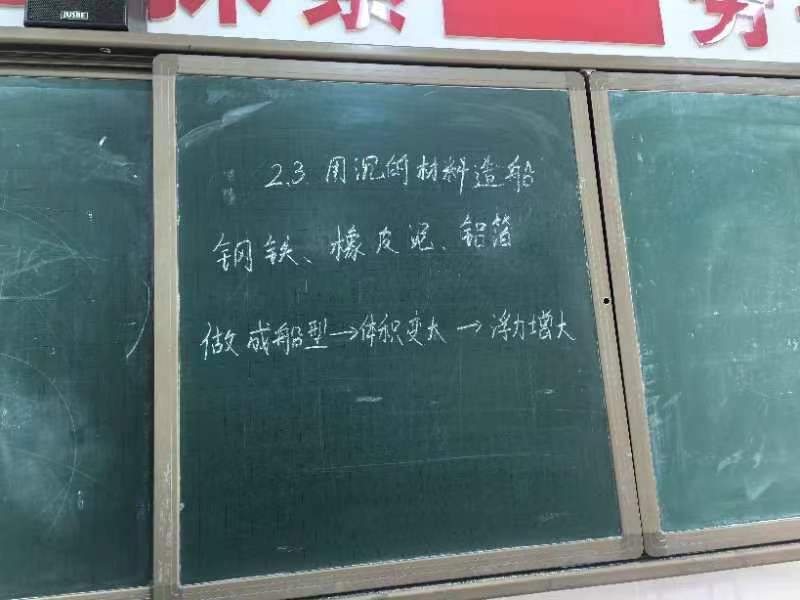 JUSBE
2.3 用沉的材料造船
钢铁、橡皮泥、铝箔
做成船型→体积变大→浮力增大